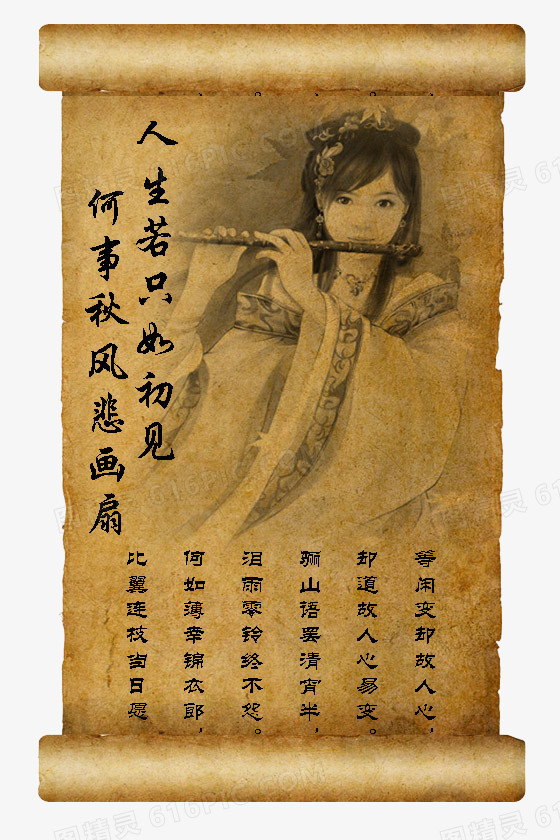 人生若只如初见
何事秋风悲画扇
等闲变却故人心，
却道故人心易变。
骊山语罢清宵半，
泪雨零铃终不怨。
何如薄幸锦衣郎，
比翼连枝当日愿
图精灵 616PIC.COM